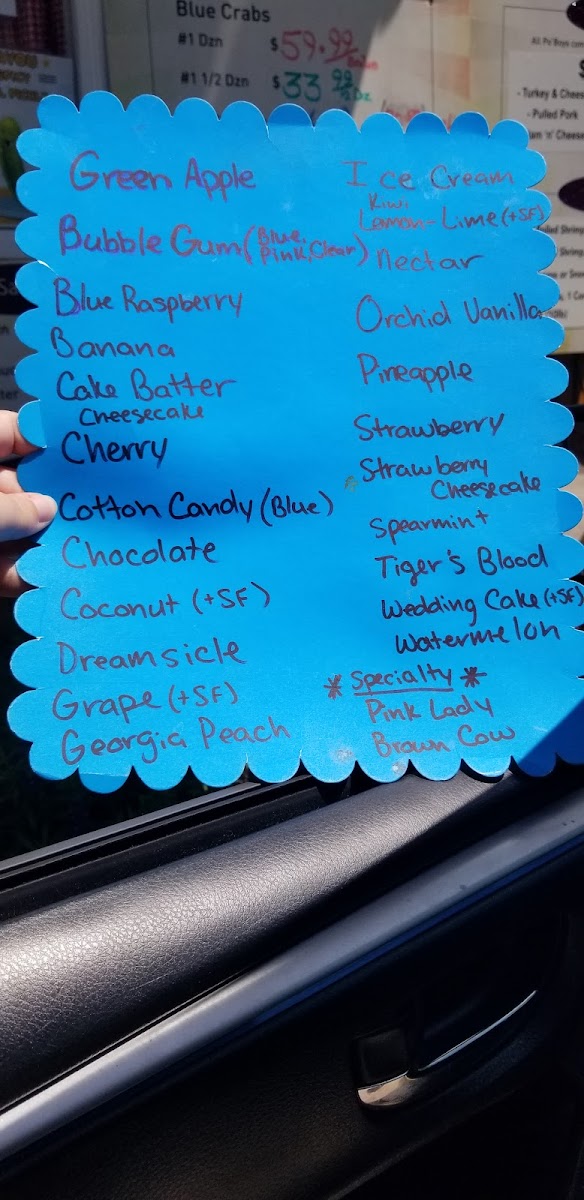 Blue Crabs
#1 Dzn $59.99
#1 1/2 Dzn $33 99
All Po'Boys
- Turkey & Chees
- Pulled Pork
Green Apple
Bubble Gum (Blue, Pink, Clear)
Blue Raspberry
Banana
Cake Batter
Cheesecake
Cherry
Cotton Candy (Blue)
Chocolate
Coconut (+SF)
Dreamsicle
Grape (+SF)
Georgia Peach
Ice Cream
Kiwi
Lemon-Lime (+SF)
Nectar
Orchid Vanilla
Pineapple
Strawberry
Strawberry
Cheesecake
Spearmint
Tiger's Blood
Wedding Cake (+SF)
Watermelon
* Specialty *
Pink Lady
Brown Cow